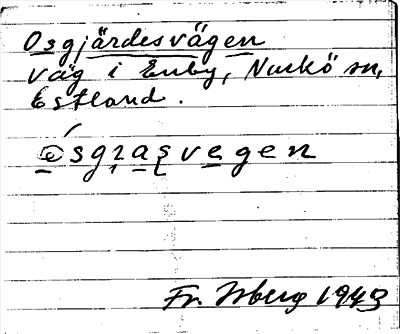 Osgjärdesvägen
väg i Enby, Nuckö sn,
Estland.
Fr. Isberg 1943